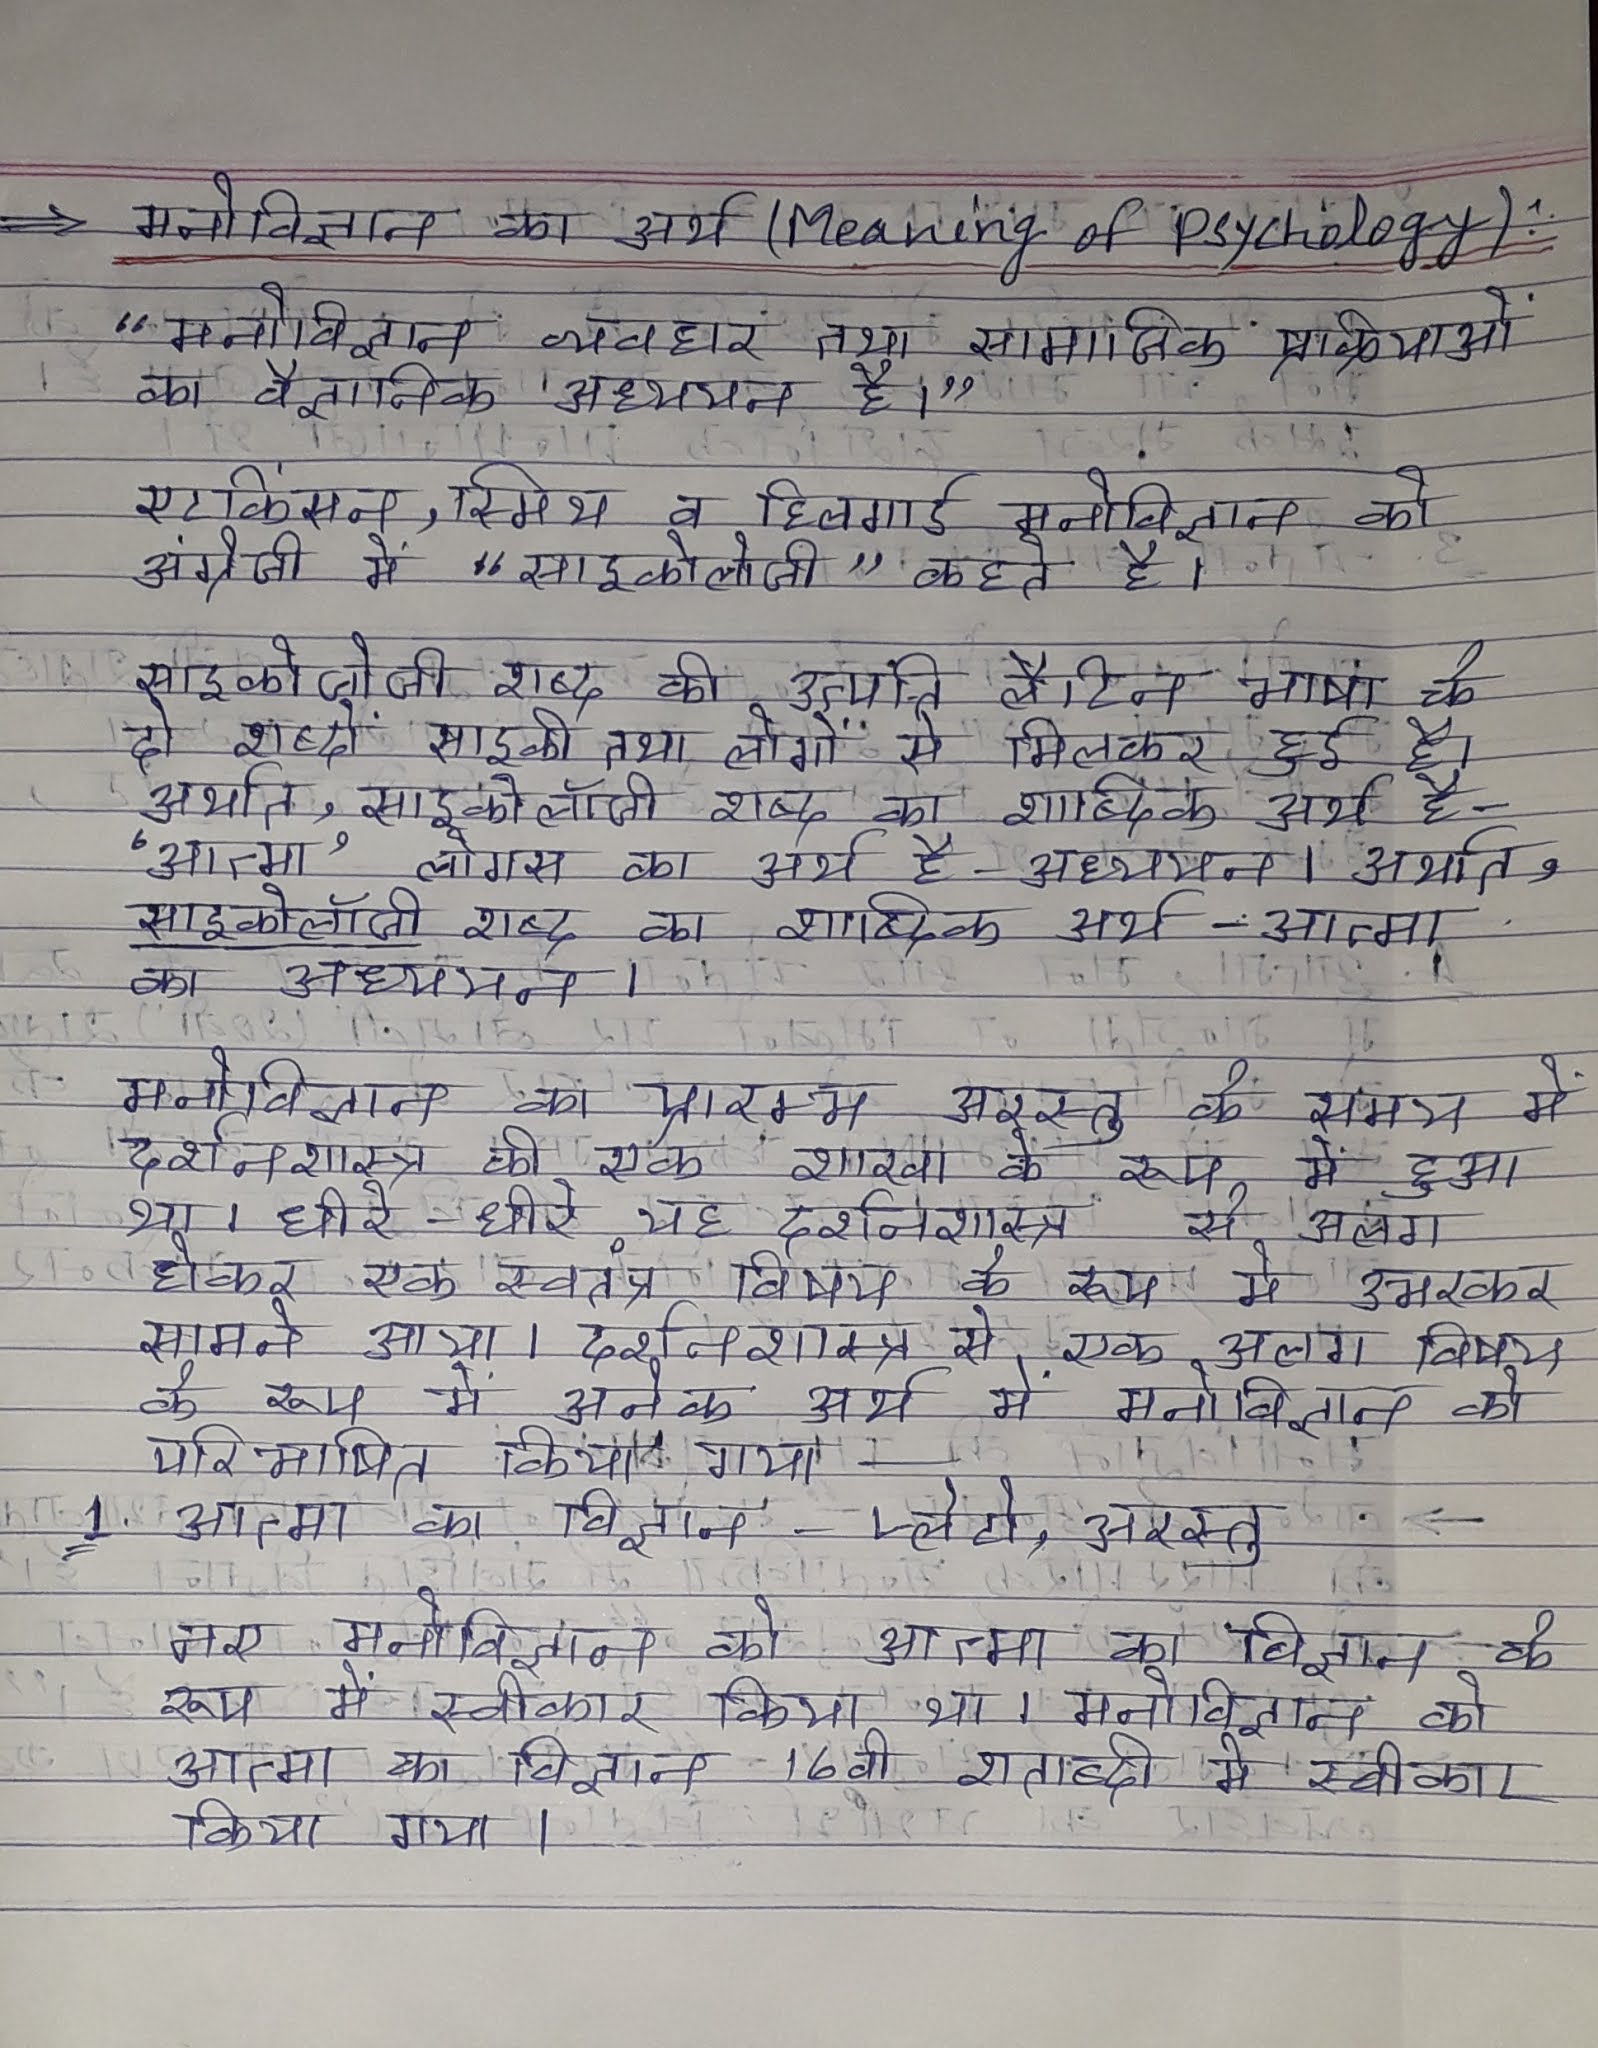 ⇒ मनोविज्ञान का अर्थ (Meaning of Psychology):
“मनोविज्ञान व्यवहार तथा सामाजिक प्रक्रियाओं
का वैज्ञानिक अध्ययन है।”
एटकिंसन, स्मिथ व हिलगार्ड मनोविज्ञान को
अंग्रेजी में “साइकोलोजी” कहते है।
साइकोलोजी शब्द की उत्पत्ति लैटिन भाषा के
दो शब्दों साइकी तथा लोगों से मिलकर हुई है।
अर्थात, साइकोलॉजी शब्द का शाब्दिक अर्थ है-
‘आत्मा’ लोगस का अर्थ है - अध्ययन। अर्थात,
साइकोलॉजी शब्द का शाब्दिक अर्थ - आत्मा
का अध्ययन।
मनोविज्ञान का प्रारम्भ अरस्तु के समय में
दर्शनशास्त्र की एक शाखा के रूप में हुआ
था। धीरे-धीरे यह दर्शनशास्त्र से अलग
होकर एक स्वतंत्र विषय के रूप मे उभरकर
सामने आया। दर्शनशास्त्र से एक अलग विषय
के रूप में अनेक अर्थ में मनोविज्ञान को
परिभाषित किया गया —
1. आत्मा का विज्ञान - प्लेटो, अरस्तु
नए मनोविज्ञान को आत्मा का विज्ञान के
रूप में स्वीकार किया था। मनोविज्ञान को
आत्मा का विज्ञान 16वी शताब्दी मे स्वीकार
किया गया।